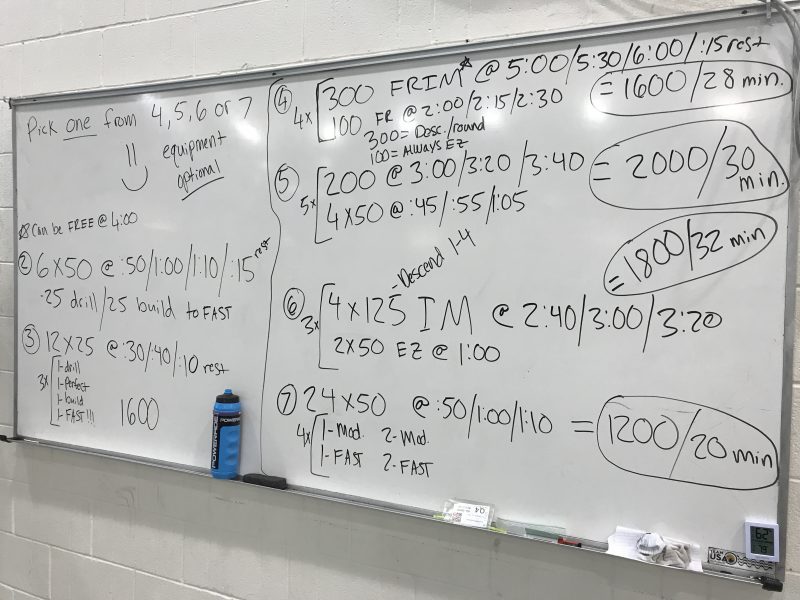 Pick one from 4, 5, 6 or 7
equipment
optional
☆ Can be FREE @ 4:00
② 6x50 @ :50/1:00/1:10/:15 rest
·25 drill/25 build to FAST
③ 12x25 @ :30/:40/:10 rest
3x
1-drill
1-perfect
1-build
1-FAST!!!
1600
④ 4x 300 FRIM☆ @ 5:00/5:30/6:00/:15 rest
100 FR @ 2:00/2:15/2:30
300= Desc./round
100= ALWAYS EZ
= 1600/28 min.
⑤ 5x 200 @ 3:00/3:20/3:40
4x50 @ :45/:55/1:05
= 2000/30 min.
-Descend 1-4
⑥ 3x 4x125 IM @ 2:40/3:00/3:20
2x50 EZ @ 1:00
= 1800/32 min
⑦ 24x50 @ :50/1:00/1:10
4x 1-Mod. 2-Mod.
1-FAST 2-FAST
= 1200/20 min
POWERADE
Q4
62
USA